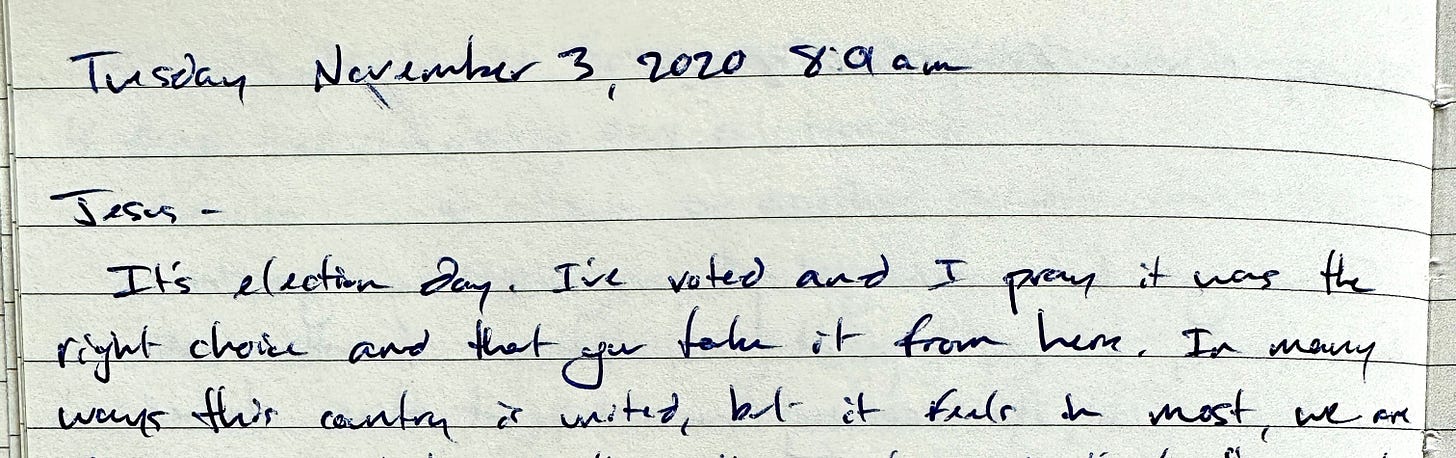 Tuesday November 3, 2020 8:9 am
Jesus -
It's election day. I've voted and I pray it was the
right choice and that you take it from here. In many
ways this country is united, but it feels in most, we are